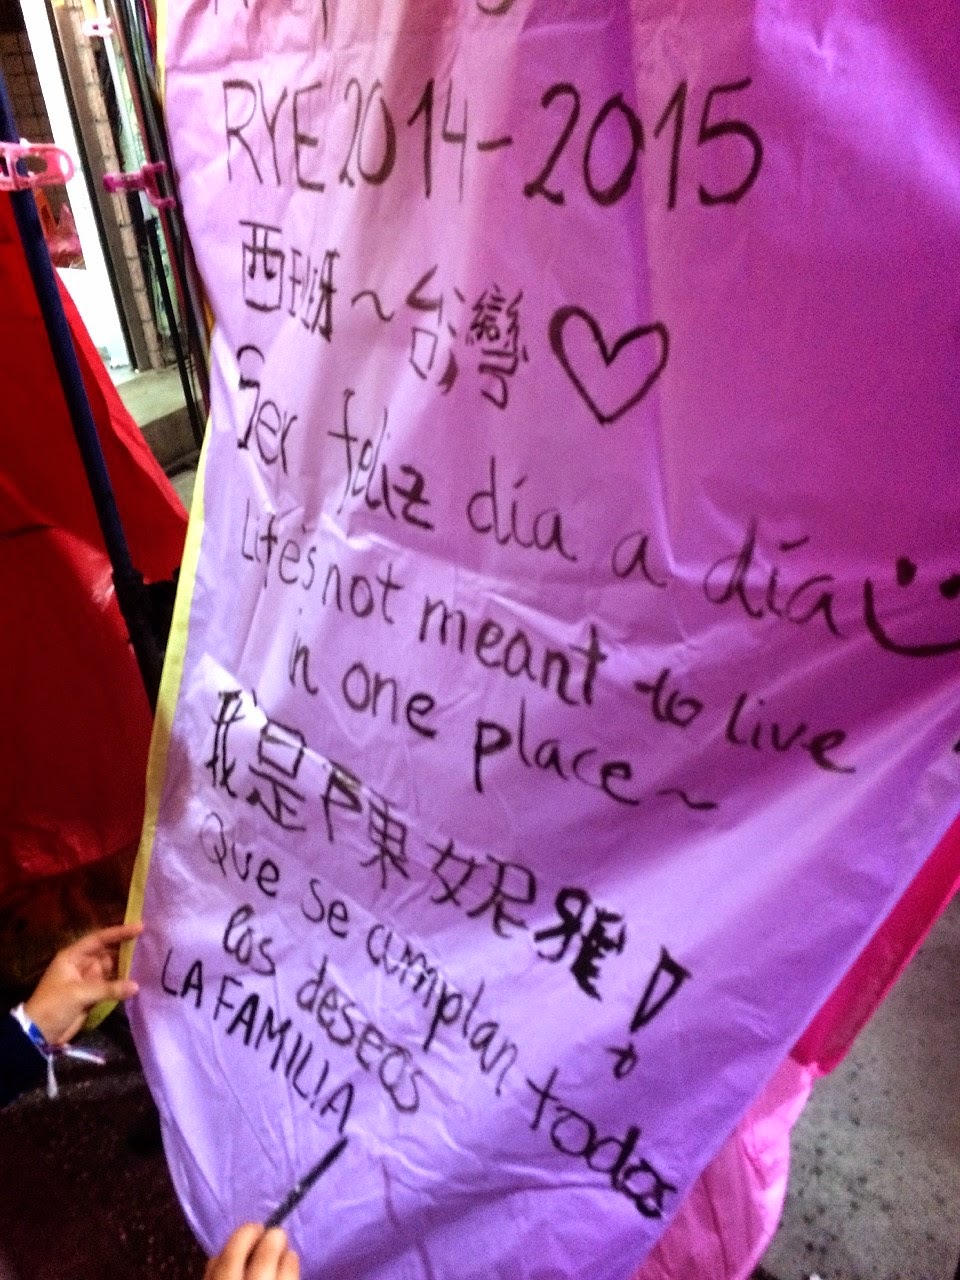 RYE 2014-2015
西班~台灣♡
Ser feliz día a día
Life's not meant to live
in one place~
我是陳妮雅!
Que se cumplan todos
los deseos
LA FAMILIA